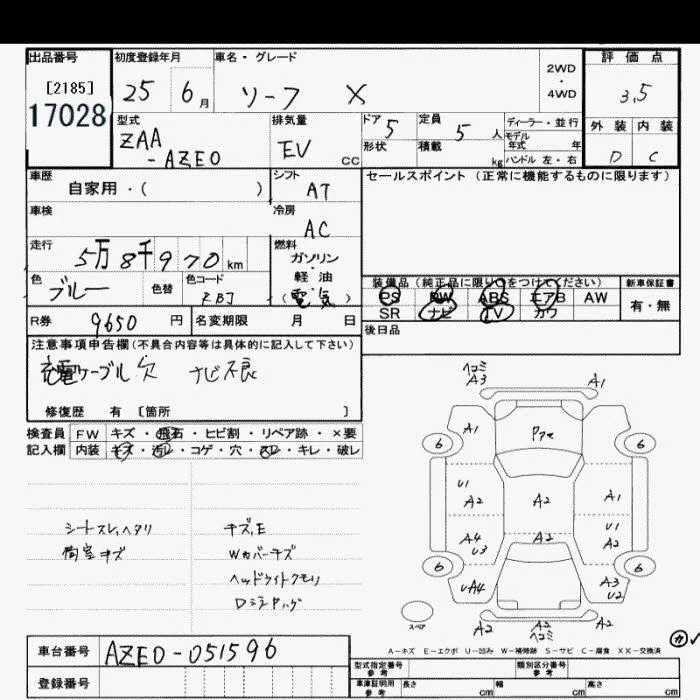 出品番号
[2185]
17028
初度登録年月
25 6月
車名・グレード
リーフ X
2WD
・
4WD
評価点
3.5
外装 内装
D C
型式
ZAA
-AZE0
排気量
EV cc
ドア 5
定員 5 人
ディーラー・並行
モデル
年式 年
形状
積載 kg
ハンドル 左・右
車歴
自家用・( )
シフト
AT
セールスポイント (正常に機能するものに限ります)
車検
冷房
AC
走行
5万8千970km
燃料
ガソリン
・
軽油
(電気)
色
ブルー
色替
色コード
RBJ
装備品 (純正品に限り○をつけてください)
新車保証書
PS PW ABS エアB AW
SR ナビ TV カワ
有・無
R券 9650円
名変期限 月 日
後日品
注意事項申告欄 (不具合内容等は具体的に記入して下さい)
充電ケーブル欠 ナビ不良
修復歴 有 [箇所 ]
検査員 FW キズ・飛石・ヒビ割・リペア跡・×要
記入欄 内装 キズ・汚レ・コゲ・穴・スレ・キレ・破レ
シートスレ,ヘタリ
荷室キズ
キズ,E
Wカバーキズ
ヘッドライトクモリ
ヘコミ
A3 A1
A1
6 6
U1
A2 A2 A1
U1
A2
A4
U3 A2
6 6
UA4 A3
U2
スペア
A2 A2 A2
ヘコミ
A-キズ E-エクボ U-凹み W-補修跡 S-サビ C-腐食 XX-交換済
カ
車台番号 AZE0-051596
登録番号
型式指定番号
参考
類別区分番号
参考
車庫証明用
参考
長さ cm 幅 cm 高さ cm